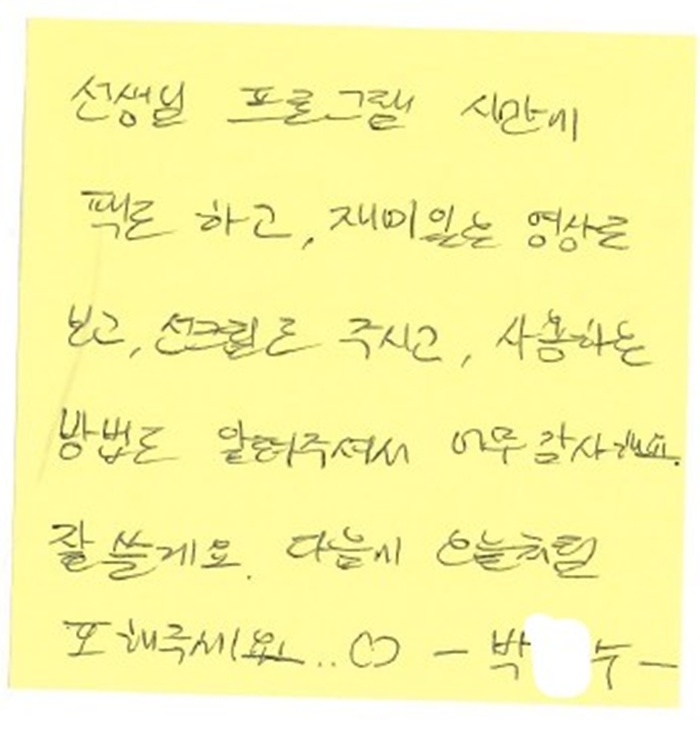 선생님 프로그램 시간에
팩도 하고, 재미있는 영상도
보고, 선크림도 주시고, 사용하는
방법도 알려주셔서 너무 감사해요.
잘 쓸게요. 다음에 오늘처럼
또 해주세요..♡ - 박 수 -